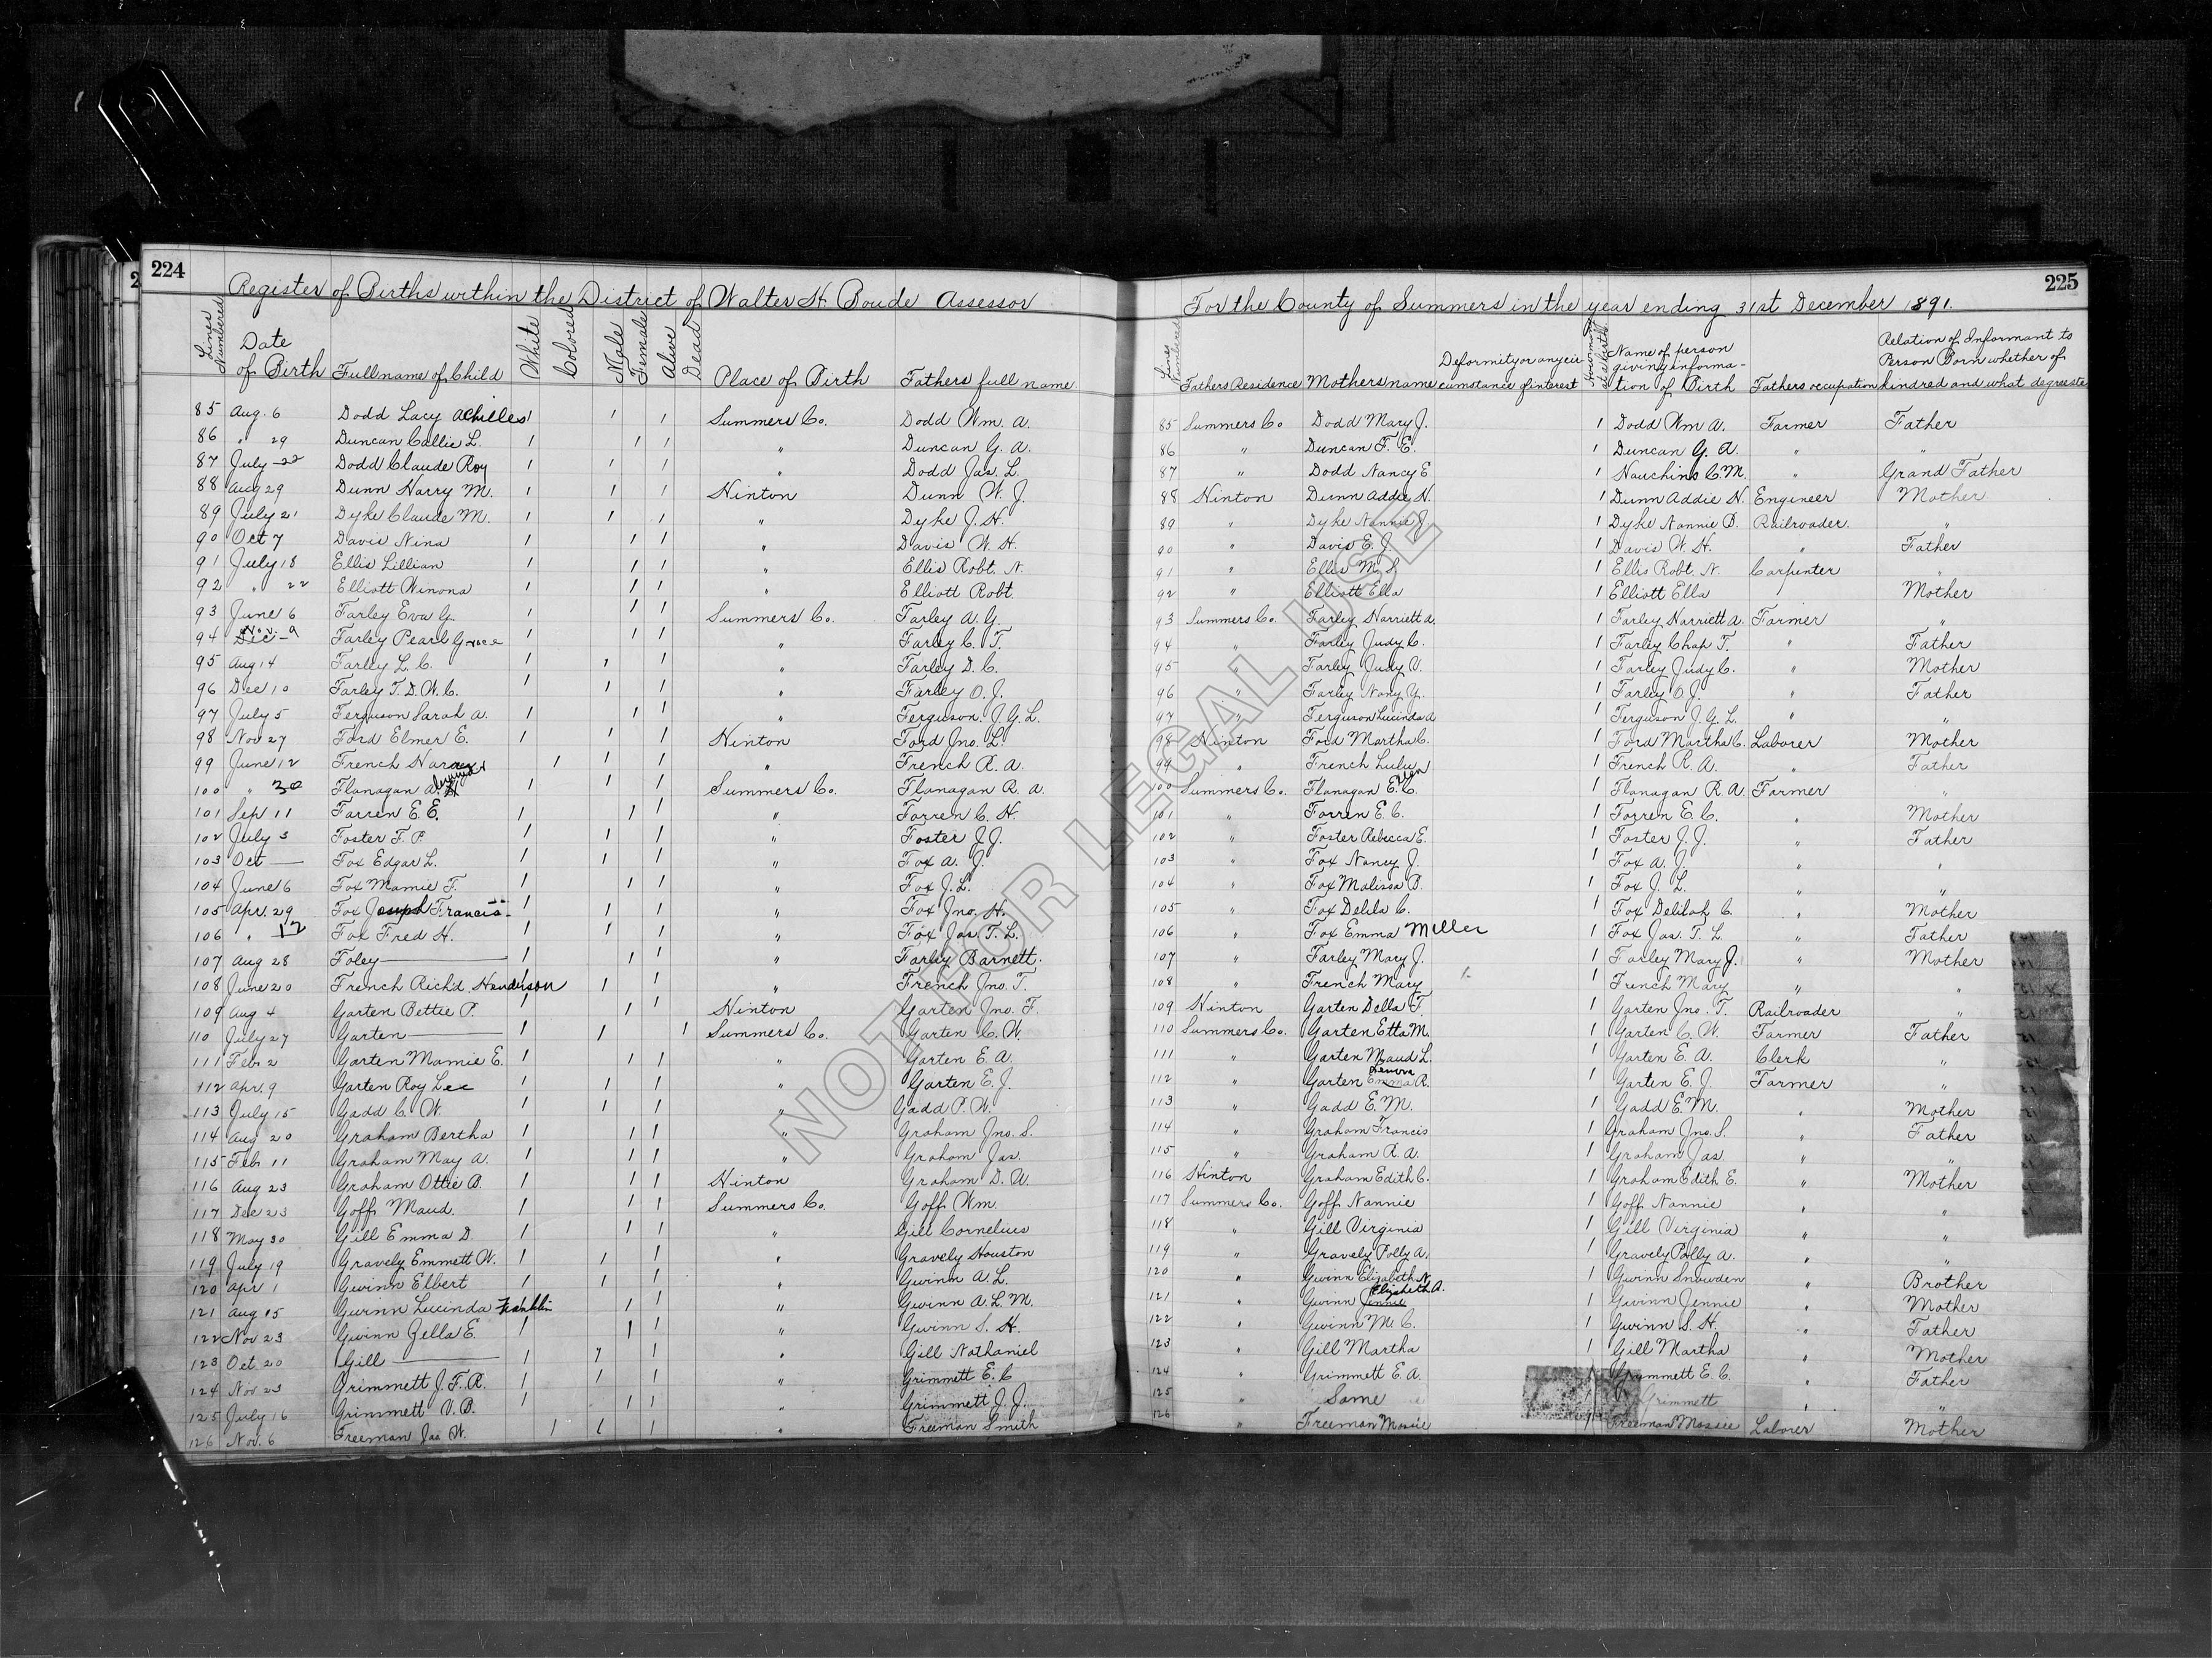 224
Register of Births within the District of Walter H. Boude Assessor
Lines Numbered
Date of Birth
Full name of Child
White
Colored
Male
Female
Alive
Dead
Place of Birth
Fathers full name
85 Aug. 6 Dodd Lacy Achilles 1 1 1 Summers Co. Dodd Wm. A.
86 " 29 Duncan Callie L. 1 1 1 " Duncan G. A.
87 July 22 Dodd Claude Roy 1 1 1 " Dodd Jas. L.
88 Aug 29 Dunn Harry M. 1 1 1 Hinton Dunn W. J.
89 July 21 Dyke Claude M. 1 1 1 " Dyke J. H.
90 Oct 7 Davis Nina 1 1 1 " Davis W. H.
91 July 18 Ellis Lillian 1 1 1 " Ellis Robt. N.
92 " 22 Elliott Winona 1 1 1 " Elliott Robt.
93 June 6 Farley Eva G. 1 1 1 Summers Co. Farley A. G.
94 Dec Nov. 9 Farley Pearl Grace 1 1 1 " Farley C. T.
95 Aug 14 Farley L. C. 1 1 1 " Farley D. C.
96 Dec 10 Farley T. D. W. C. 1 1 1 " Farley O. J.
97 July 5 Ferguson Sarah A. 1 1 1 " Ferguson J. G. L.
98 Nov 27 Ford Elmer E. 1 1 1 Hinton Ford Jno. L.
99 June 12 French 1 1 1 " French R. A.
100 " 30 Flanagan A. 1 1 1 Summers Co. Flanagan R. A.
101 Sep 11 Farren E. E. 1 1 1 " Farren C. H.
102 July 3 Foster F. P. 1 1 1 " Foster J. J.
103 Oct — Fox Edgar L. 1 1 1 " Fox A. J.
104 June 6 Fox Mamie F. 1 1 1 " Fox J. L.
105 Apr. 29 Fox Joseph Francis 1 1 1 " Fox Jno. H.
106 " 12 Fox Fred H. 1 1 1 " Fox Jas. T. L.
107 Aug 28 Foley — 1 1 1 " Farley Barnett.
108 June 20 French Rich'd Henderson 1 1 " French Jno. T.
109 Aug 4 Garten Bettie P. 1 1 1 Hinton Garten Jno. F.
110 July 27 Garten — 1 1 1 Summers Co. Garten C. W.
111 Feb 2 Garten Mamie E. 1 1 1 " Garten E. A.
112 Apr. 9 Garten Roy Lee 1 1 1 " Garten E. J.
113 July 15 Gadd C. W. 1 1 1 " Gadd P. W.
114 Aug 20 Graham Bertha 1 1 1 " Graham Jno. S.
115 Feb 11 Graham May A. 1 1 1 " Graham Jas.
116 Aug 23 Graham Ottie B. 1 1 1 Hinton Graham D. A.
117 Dec 23 Goff Maud. 1 1 1 Summers Co. Goff Wm.
118 May 30 Gill Emma D. 1 1 1 " Gill Cornelius
119 July 19 Gravely Emmett W. 1 1 1 " Gravely Houston
120 Apr 1 Gwinn Elbert 1 1 1 " Gwinn A. L.
121 Aug 15 Gwinn Lucinda Franklin 1 1 " Gwinn A. L. M.
122 Nov 23 Gwinn Zella E. 1 1 1 " Gwinn S. H.
123 Oct 20 Gill — 1 1 1 " Gill Nathaniel
124 Nov 23 Grimmett J. F. R. 1 1 1 " Grimmett E. C
125 July 16 Grimmett V. B. 1 1 1 " Grimmett J. J.
126 Nov. 6 Freeman Jas W. 1 1 1 " Freeman Smith
225
For the County of Summers in the year ending 31st December 1891.
Lines Numbered
Fathers Residence
Mothers name
Deformity or any circumstance of interest
Name of person giving information of Birth
Fathers occupation
Relation of Informant to Person Born whether of kindred and what degree etc
85 Summers Co Dodd Mary J. 1 Dodd Wm A. Farmer Father
86 " Duncan F. E. 1 Duncan G. A. " "
87 " Dodd Nancy E 1 Hauchins C. M. " Grand Father
88 Hinton Dunn Addie H. 1 Dunn Addie H. Engineer Mother
89 " Dyke Nannie 1 Dyke Nannie B. Railroader. "
90 " Davis E. J. 1 Davis W. H. " Father
91 " Ellis M. S. 1 Ellis Robt. N. Carpenter "
92 " Elliott Ella 1 Elliott Ella Mother
93 Summers Co. Farley Harriett A. 1 Farley Harriett A. Farmer "
94 " Farley Judy C. 1 Farley Chap T. " Father
95 " Farley Judy V. 1 Farley Judy C. " Mother
96 " Farley Nancy Y. 1 Farley O. J. " Father
97 " Ferguson Lucinda A 1 Ferguson J. G. L. " "
98 Hinton Ford Martha C. 1 Ford Martha C. Laborer Mother
99 " French Lulu 1 French R. A. " Father
100 Summers Co. Flanagan E. C. 1 Flanagan R. A. Farmer "
101 " Farren E. C. 1 Farren E. C. " Mother
102 " Foster Rebecca E. 1 Foster J. J. " Father
103 " Fox Nancy J. 1 Fox A. J. " "
104 " Fox Malissa B. 1 Fox J. L. " "
105 " Fox Delila C. 1 Fox Delilah C. " Mother
106 " Fox Emma Miller 1 Fox Jas. T. L. " Father
107 " Farley Mary J. 1 Farley Mary J. " Mother
108 " French Mary 1 French Mary " "
109 Hinton Garten Della F. 1 Garten Jno. T. Railroader "
110 Summers Co. Garten Etta M. 1 Garten C. W. Farmer Father
111 " Garten Maud L. 1 Garten E. A. Clerk "
112 " Garten Emma Lenora R. 1 Garten E. J. Farmer "
113 " Gadd E. M. 1 Gadd E. M. " Mother
114 " Graham Francis 1 Graham Jno. S. " Father
115 " Graham R. A. 1 Graham Jas. " "
116 Hinton Graham Edith C. 1 Graham Edith E. " Mother
117 Summers Co. Goff Nannie 1 Goff Nannie " "
118 " Gill Virginia 1 Gill Virginia " "
119 " Gravely Polly A. 1 Gravely Polly A. " "
120 " Gwinn Elizabeth N. 1 Gwinn Snowden Brother
121 " Gwinn Jennie Elizabeth A. 1 Gwinn Jennie " Mother
122 " Gwinn M. C. 1 Gwinn S. H. " Father
123 " Gill Martha 1 Gill Martha " Mother
124 " Grimmett E. A. Grimmett E. C. " Father
125 Same Grimmett " "
126 " Freeman Mossie Freeman Mossie Laborer Mother
NOT FOR LEGAL USE